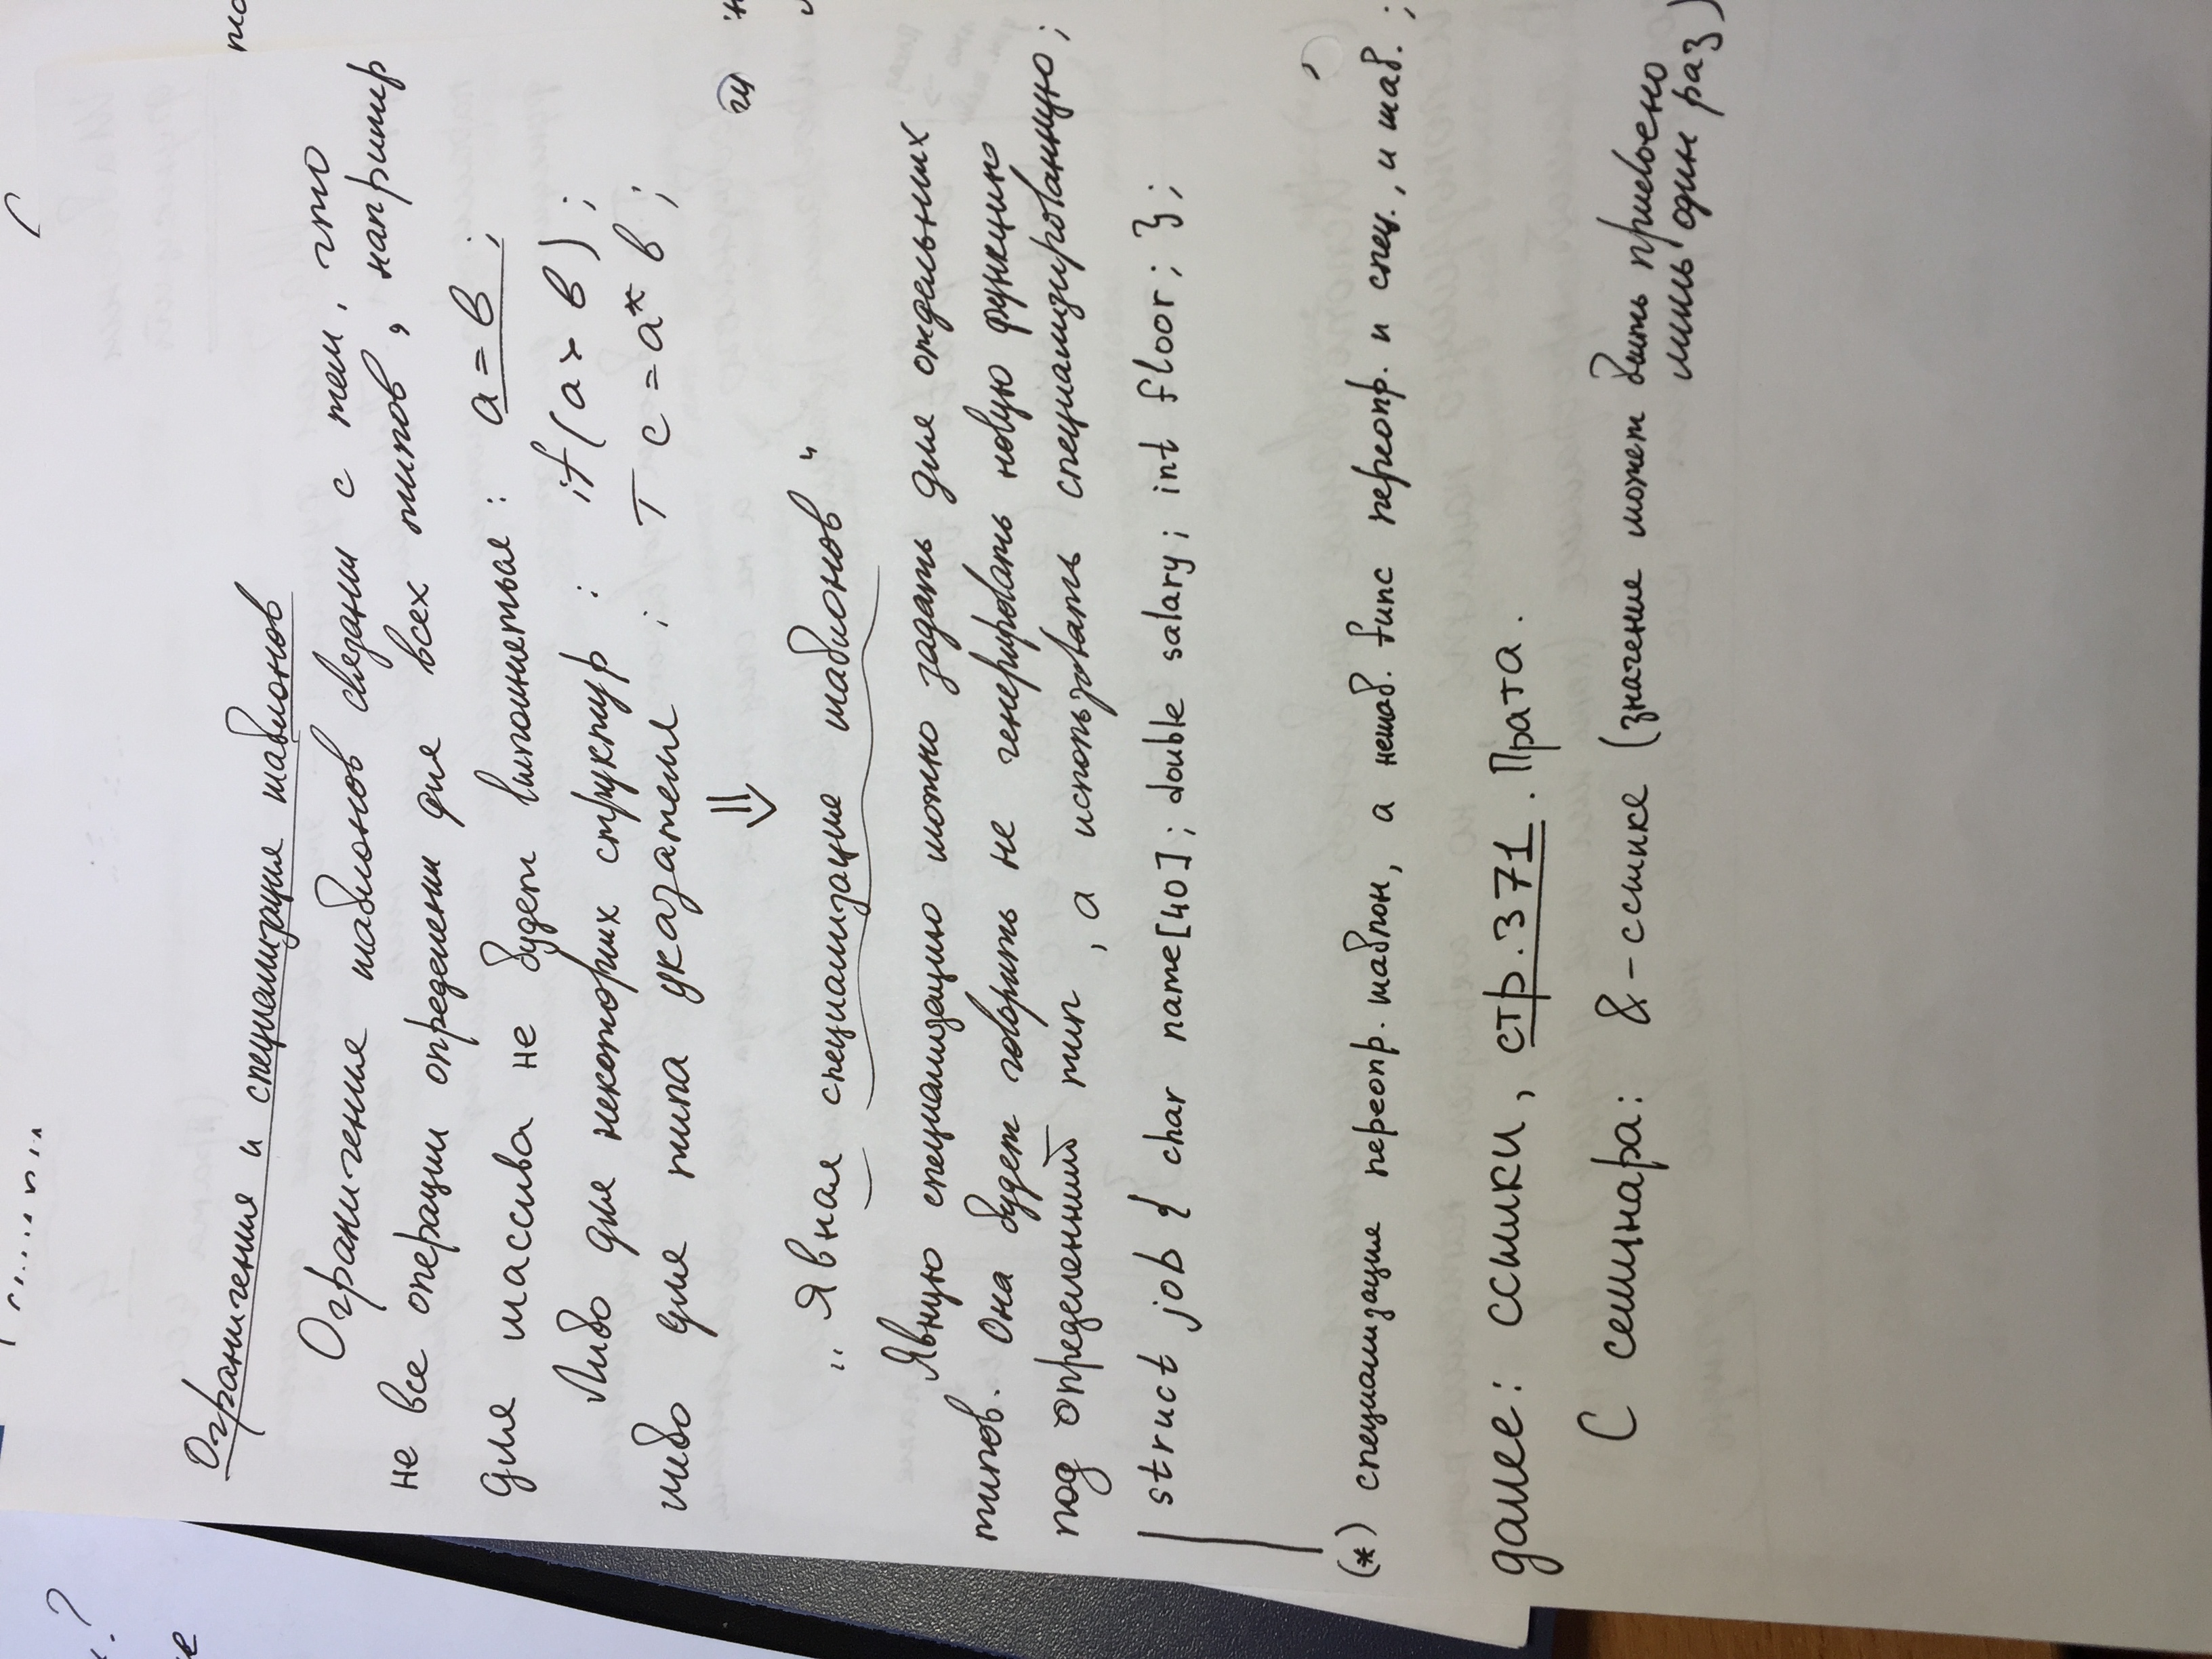 Ограничения и специализация шаблонов
Ограничения шаблонов связаны с тем, что
не все операции определены для всех типов, напримир
для массива не будет выполняться: a = b ;
Либо для некоторых структур : if(a > b) ;
либо для типа указателя : T c = a * b ;
⇓
„Явная специализация шаблонов“
Явную специализацию можно задать для отдельных
типов. Она будет говорить не генерировать новую функцию
под определенный тип, а использовать специализированную;
struct job { char name[40]; double salary; int floor; };
(*) специализация переопр. шаблон, а нешаб. func переопр. и спец., и шаб. ;
далее: ссылки, стр. 371. Прата.
С семинара: & - ссылке (значение может быть присвоено
лишь один раз)